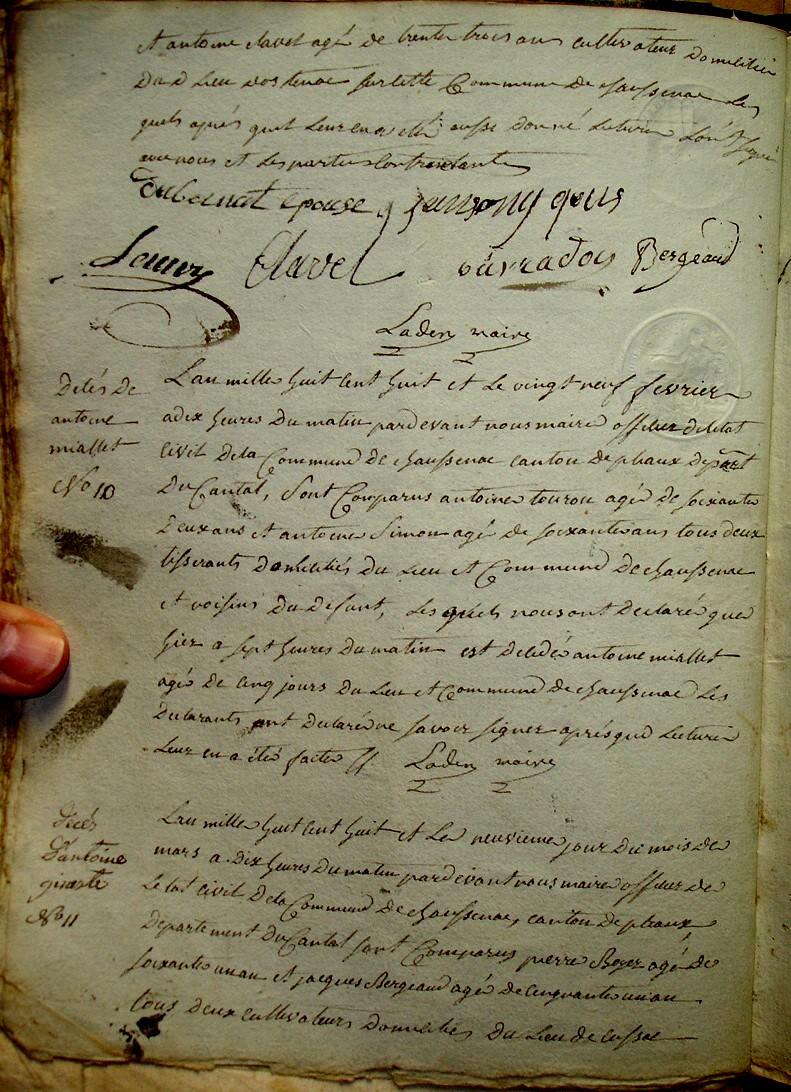 et antoine clavel agé de trente trois ans cultivateur domicilié
du d lieu dostenac sur cette Commune de chaussenac les
quels aprés quil leur en a eté aussi donné lecture ont signé
avec nous et les parties Contractantes
epouse jeansony
Clavel ouvradou Bergeaud
Laden maire
Décés de
antoine
miallet
No 10
Lan mille huit Cent huit et le vingt neuf fevrier
a dix heures du matin pardevant nous maire officier deletat
Civil dela Commune de chaussenac canton de pleaux depart
du Cantal, sont Comparus antoine tourou agé de soixante
deux ans et antoine Simon agé de soixante ans tous deux
tisserants domiciliés du lieu et Commune de chaussenac
et voisins du defunt, les quels nous ont declaré que
hier a sept heures du matin est decedé antoine miallet
agé de Cinq jours du lieu et Commune de chaussenac les
declarants ont declaré ne savoir signer aprés que lecture
leur en a été faite //
Laden maire
decés
d'antoine
No 11
Lan mille huit Cent huit et Le neuvieme jour du mois de
mars a dix heures du matin pardevant nous maire officier de
Letat Civil dela Commune de chaussenac, canton de pleaux,
departement du Cantal sont Comparus pierre Boyer agé de
soixante un an et jacques Bergeaud agé de cinquante un an
tous deux cultivateurs domiciliés du Lieu de cussac